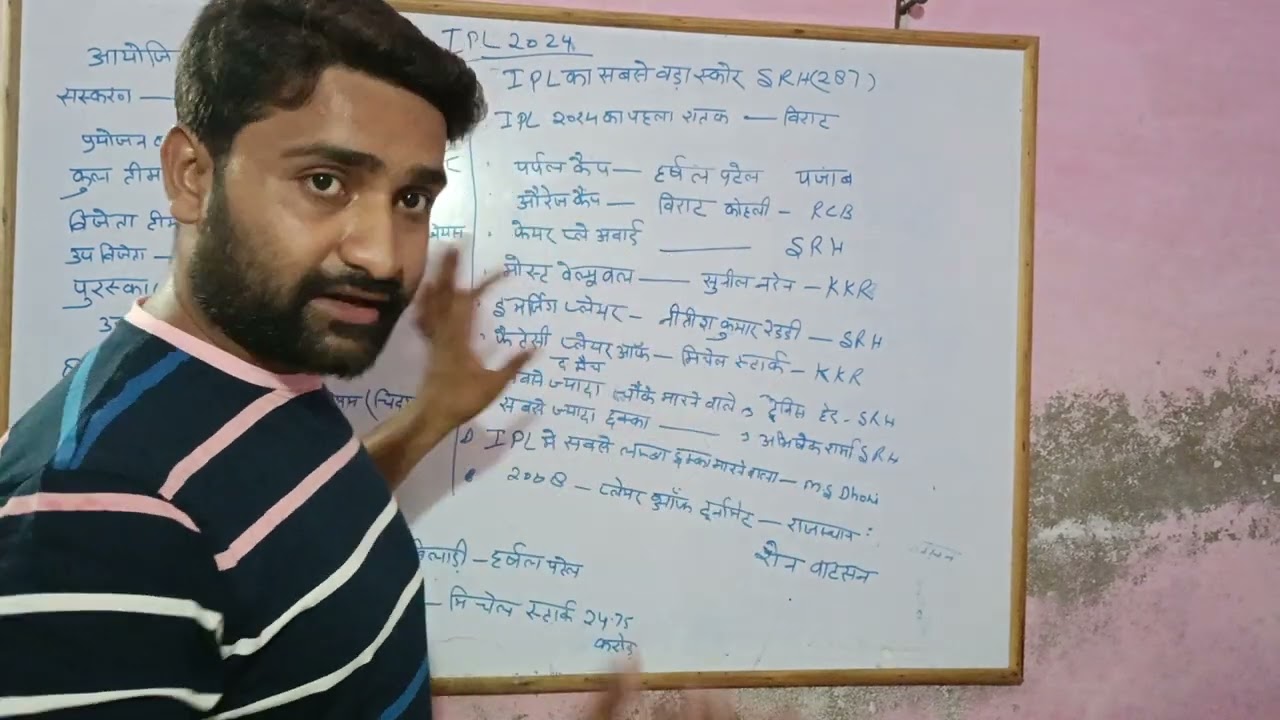 IPL 2024
आयोजि
सस्करण —
प्रयोजन
कुल टीम
विजेता टीम
उप विजेता —
पुरस्का
IPL का सबसे बड़ा स्कोर SRH(287)
IPL 2024 का पहला शतक — विराट
पर्पल कैप — हर्षल पटेल पंजाब
औरेंज कैप — विराट कोहली - RCB
फेयर प्ले अवार्ड — SRH
मोस्ट वेल्यूवल — सुनील नरेन - KKR
इमर्जिंग प्लेयर - नीतीश कुमार रेडडी - SRH
फैंटेसी प्लेयर ऑफ - मिचेल स्टार्क - KKR
द मैच
सबसे ज्यादा चौके मारने वाले → ट्रेविस हेड - SRH
सबसे ज्यादा छक्का — → अभिषेक शर्मा SRH
IPL में सबसे लम्बा छक्का मारने वाला - MS Dhoni
2008 - प्लेयर ऑफ टूर्नामेंट - राजस्थान :
शेन वाटसन
खिलाड़ी - हर्षल पटेल
- मिचेल स्टार्क 24.75
करोड़